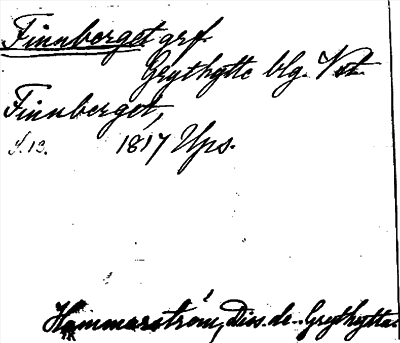 Finnberget grf.
Grythytte blg. Vstm.
Finnberget,
s. 13. 1817 Ups.
Hammarström, Diss. de Grythytta